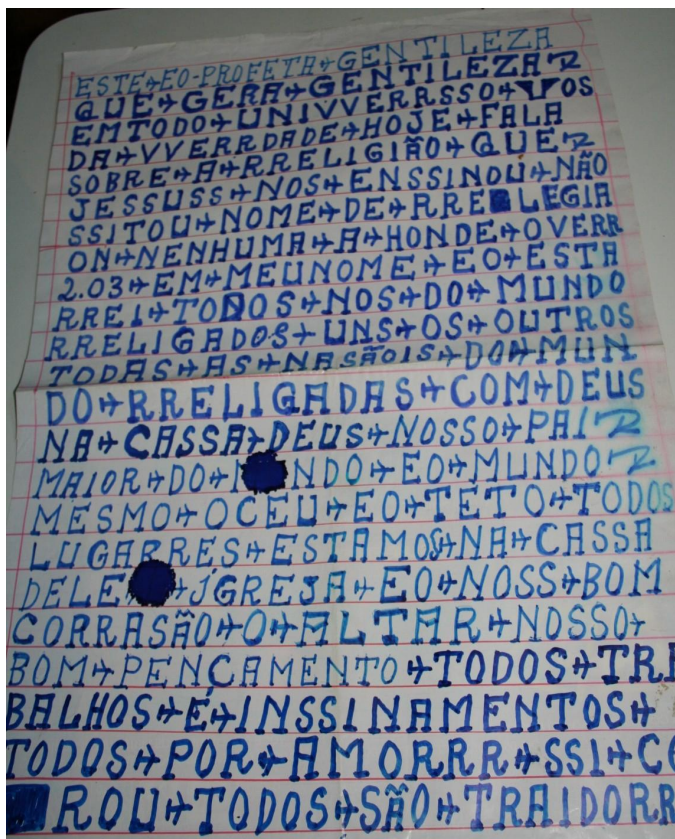 ESTE→EO-PROFETA→GENTILEZA
QUE→GERA→GENTILEZA
EMTODO→UNIVVERRSSO→VOS
DA→VVERRDADE→HOJE→FALA
SOBRE→A→RRELIGIÃO→QUE
JESSUSS→NOS→ENSSINOU→NÃO
SSITOU→NOME→DE→RRE LEGIA
ON→NENHUMA→A→HONDE→OVERR
2.03→EM→MEUNOME→EO→ESTA
RREI→TODOS→NOS→DO→MUNDO
RRELIGADOS→UNS→OS→OUTROS
TODAS→AS→NASÃOIS→DO→MUN
DO→RRELIGADAS→COM→DEUS
NA→CASSA→DEUS→NOSSO→PAI
MAIOR→DO→M NDO→EO→MUNDO
MESMO→OCEU→EO→TETO→TODOS
LUGARRES→ESTAMOS→NA→CASSA
DELE →JGREJA→EO→NOSS→BOM
CORRASÃO→O→ALTAR→NOSSO→
BOM→PENÇAMENTO→TODOS→TRE
BALHOS→É→INSSINAMENTOS→
TODOS→POR→AMORRR→SSI→CO
ROU→TODOS→SÃO→TRAIDORR